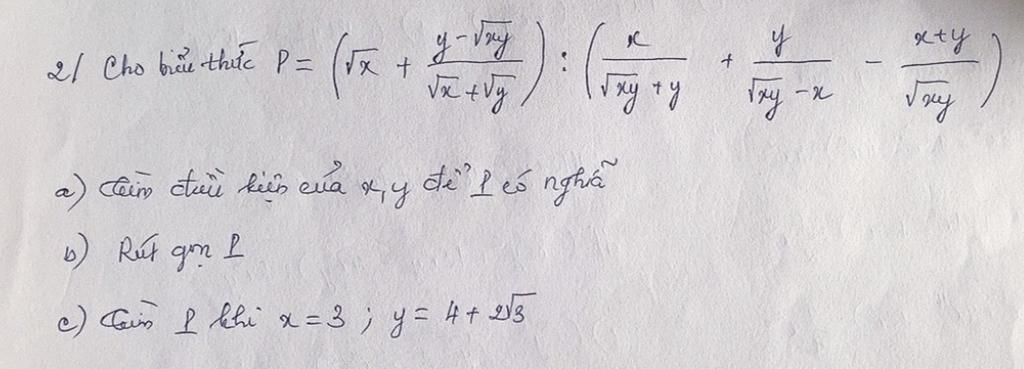 2/ Cho biểu thức P = (√x + (y - √xy)/(√x + √y)) : (x/(√xy + y) + y/(√xy - x) - (x+y)/√xy)
a) Tìm điều kiện của x, y để P có nghĩa
b) Rút gọn P
c) Tìm P khi x = 3 ; y = 4 + 2√3